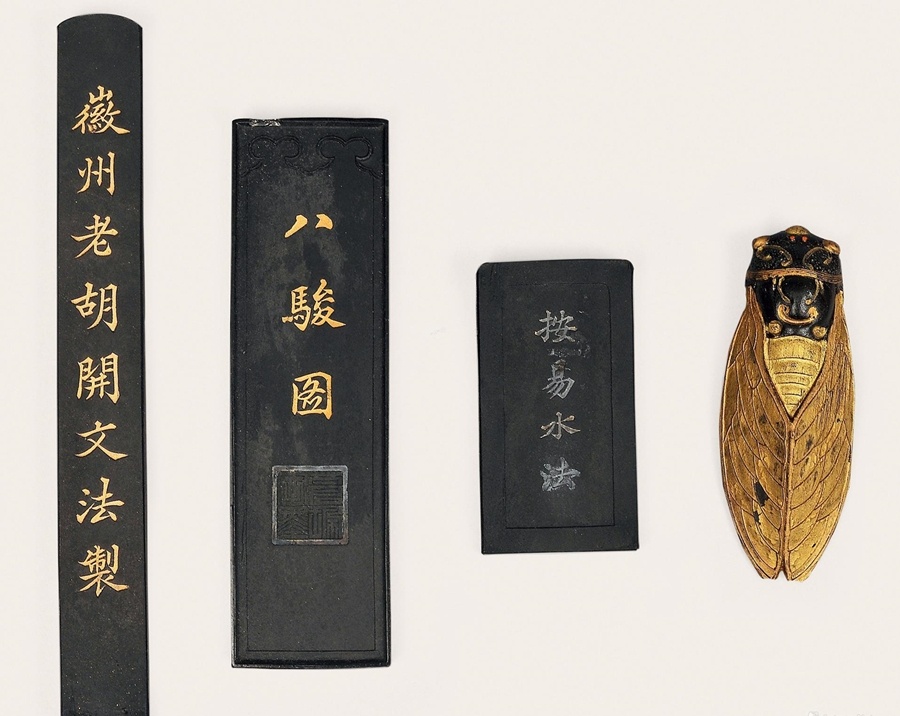 徽州老胡開文法製
八駿圖
按易水法